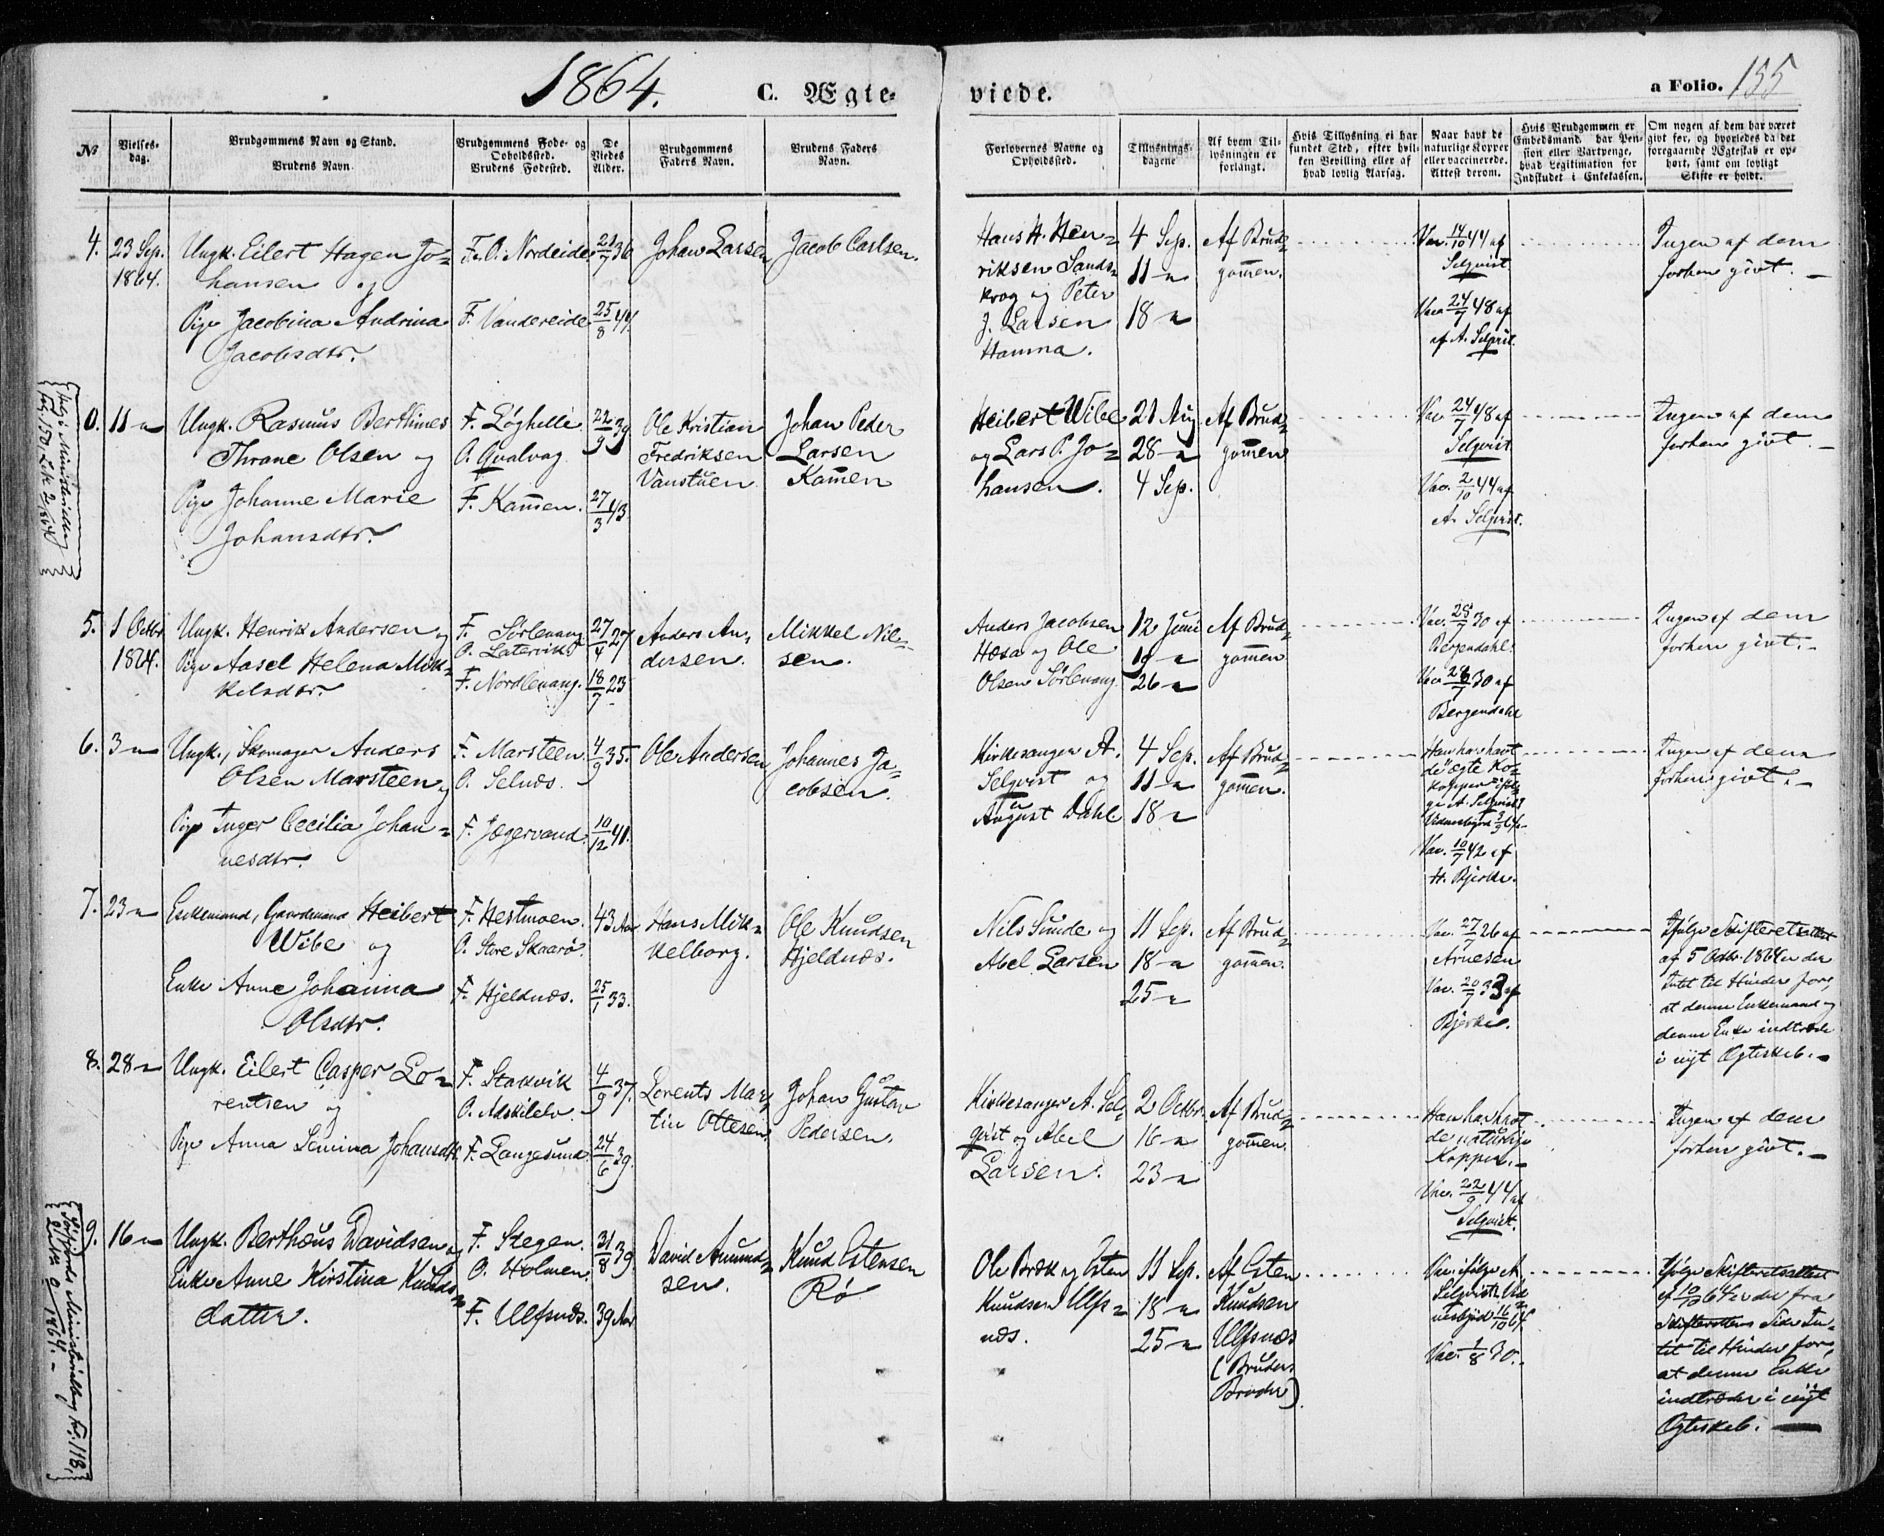 1864.
C. Ægte-
viede.
a Folio. 155
№
Vielses-
dag.
Brudgommens Navn og Stand.
Brudens Navn.
Brudgommens Føde- og
Opholdssted.
Brudens Fødested.
De
Viedes
Alder.
Brudgommens
Faders Navn.
Brudens Faders
Navn.
Forlovernes Navne og
Opholdssted.
Tillysnings-
dagene
Af hvem Til-
lysningen er
forlangt.
Hvis Tillysning ei har
fundet Sted, efter hvil-
ken Bevilling eller af
hvad lovlig Aarsag.
Naar havt de
naturlige Kopper
eller vaccinerede.
Attest derom.
Hvis Brudgommen er
Embedsmand, har Pen-
sion eller Vartpenge,
hvad Legitimation for
Indskudet i Enkekassen.
Om nogen af dem har været
givt før, og hvorledes da det
foregaaende Ægteskab er op-
hørt, samt om lovligt
Skifte er holdt.
4. 23 Sep.
1864.
Ungk. Eilert Hagen Jo-
hansen og
Pige Jacobina Andrina
Jacobsdtr.
F. O. Nordeide
F. Vandereide
21/7 36
25/8 44
Johan Larsen
Jacob Carlsen.
Hans H. Hen-
riksen Sands-
krog og Peter
J. Larsen
Hamna.
4 Sep.
11 "
18 "
Af Brud-
gommen.
Vac. 14/10 44 af
Selqvist
Vacc 24/7 48 af
af A. Selqvist.
Ingen af dem
forhen givt.
0. 11 "
Ungk. Rasmus Berthines
Thrane Olsen og
Pige Johanne Marie
Johansdtr.
F. Løghelle
O. Qvalvaag
F. Kammen.
22/9 39
27/3 43.
Ole Kristian
Fredriksen
Vanstuen
Johan Peder
Larsen
Kammen
Heibert Wibe
og Lars P. Jo-
hansen.
21 Aug
28 "
4 Sep.
Af Brud-
gommen
Vac. 24/7 48 af
Selqvist.
Vac. 2/10 44 af
A. Selqvist.
Ingen af dem
forhen givt.
5. 1 Octbr
1864.
Ungk. Henrik Andersen og
Pige Aasel Helena Mik-
kelsdtr.
F. Sørlenang
O. Latervik
F. Nordlenang.
27/4 27
18/7 23
Anders An-
dersen.
Mikkel Nil-
sen.
Anders Jacobsen
Hæsa og Ole
Olsen Sørlenang
12 Juni
19 "
26 "
Af Brud-
gommen
Vac. 28/7 30 af
Bergendahl.
Vac 28/7 30 af
Bergendahl
Ingen af dem
forhen givt.
6. 3 "
Ungk., Skomager Anders
Olsen Marsteen og
Pige Inger Cecilia Johan-
nesdtr.
F. Marsteen
O. Selnæs.
F. Jægervand.
4/9 35.
10/12 41.
Ole Andersen
Johannes Ja-
cobsen.
Kirkesanger A.
Selqvist og
August Dahl
4 Sep.
11 "
18 "
Af Brud-
gommen.
Han har havt
de ægte Ko-
kopper ifølg-
ge A. Selqvists
Vidnesbyrd
Vac. 10/7 42 af
H. Bjerke.
Ingen af dem
forhen givt.
7. 23 "
Enkemand, Gaardmand Heibert
Wibe og
Enke Anne Johanna
Olsdtr.
F. Hestmoen.
O. Store Skaarø.
F. Hjeldnæs.
43 Aar
25/1 33.
Hans Mik-
kelborg.
Ole Knudsen
Hjeldnæs.
Nils Sunde og
Abel Larsen
11 Sep.
18 "
25 "
Af Brud-
gommen.
Vac. 27/7 26 af
Arnesen
Vac. 20/7 33 af
Bjerke.
Ifølge Skifteretsattest
af 5 Octbr. 1864 er der
Intet til Hinder for,
at denne Enkemand og
denne Enke indtræde
i nyt Ægteskab.
8. 28 "
Ungk. Eilert Casper Lo-
rentsen og
Pige Anna Lemina Johansdtr.
F. Stakvik
O. Adskilelv.
F. Langesund.
4/9 37.
24/6 39.
Lorents Mar-
tin Ottesen
Johan Gustav
Pedersen
Kirkesanger A. Sel-
qvist og Abel
Larsen.
2 Octbr.
16 "
23 "
Af Brud-
gommen.
Han har havt
de naturlige
Kopper.
Vac. 22/9 44 af
Selqvist.
Ingen af dem
forhen givt.
9. 16 "
Ungk. Berthæus Davidsen og
Enke Anne Kirstina Knuds-
datter.
F. Stegen.
O. Holmen.
F. Ulfsnæs.
31/8 39.
39 Aar
David Amund-
sen.
Knud Estensen
Rø
Ole Bræk og Esten
Knudsen Ulfs-
næs.
11 Sep.
18 "
25 "
Af Esten
Knudsen
Ulfsnæs
(Brudens
Broder)
Vac. ifølge A.
Selqvists Vid-
nesbyrd 16/10 64
Vac. 1/8 30.
Ifølge Skifteretsattest
af 10/10 64 er der fra
Skifterettens Side In-
tet til Hinder for,
at denne Enke
indtræder i nyt
Ægteskab.